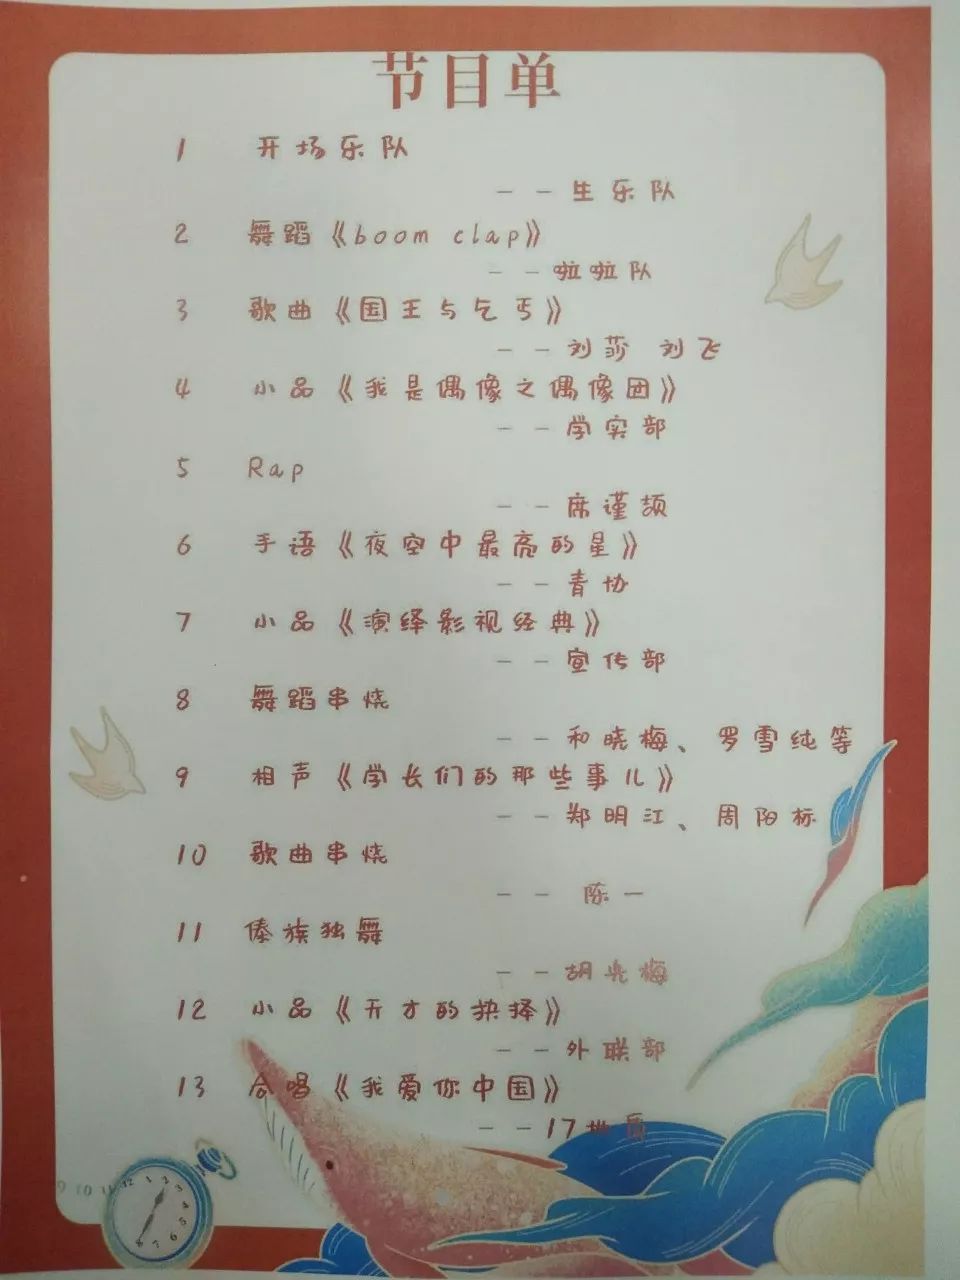 节目单
1 开场乐队
——生乐队
2 舞蹈《boom clap》
——啦啦队
3 歌曲《国王与乞丐》
——刘莎 刘飞
4 小品《我是偶像之偶像团》
——学实部
5 Rap
——席谨颉
6 手语《夜空中最亮的星》
——青协
7 小品《演绎影视经典》
——宣传部
8 舞蹈串烧
——和晓梅、罗雪纯等
9 相声《学长们的那些事儿》
——郑明江、周阳标
10 歌曲串烧
—— 陈一
11 傣族独舞
——胡兆梅
12 小品《天才的抉择》
——外联部
13 合唱《我爱你中国》
——17地质
9 10 11 12 1 2 3 4 5 6 7 8